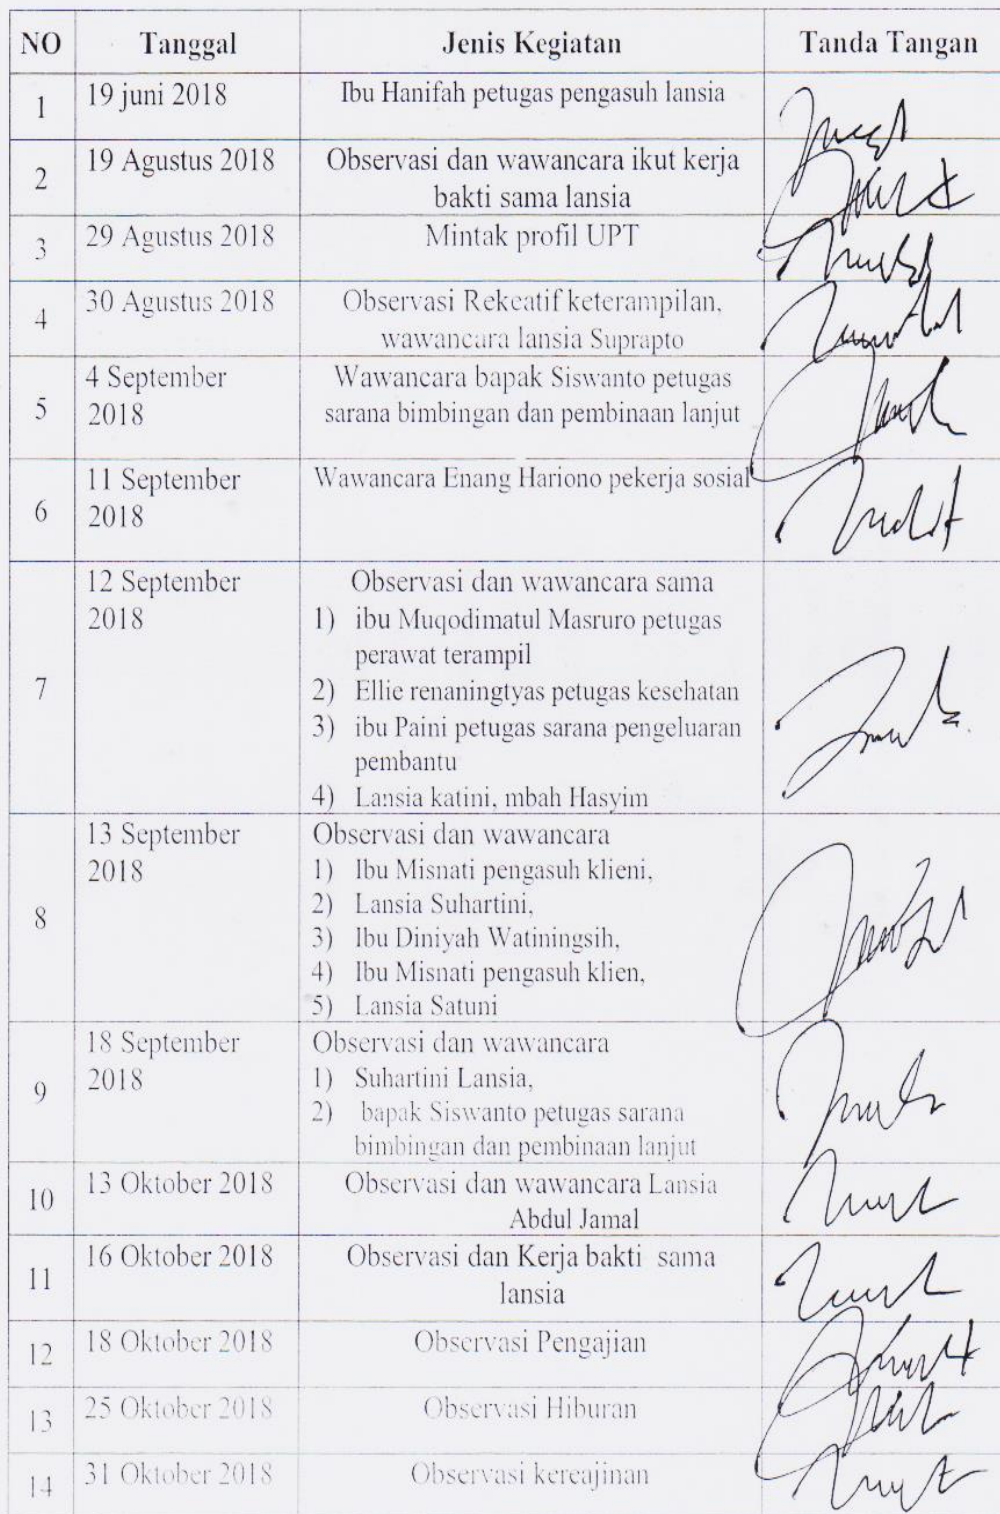 NO Tanggal Jenis Kegiatan Tanda Tangan
1 19 juni 2018 Ibu Hanifah petugas pengasuh lansia
2 19 Agustus 2018 Observasi dan wawancara ikut kerja
bakti sama lansia
3 29 Agustus 2018 Mintak profil UPT
4 30 Agustus 2018 Observasi Rekeatif keterampilan,
wawancara lansia Suprapto
5 4 September
2018 Wawancara bapak Siswanto petugas
sarana bimbingan dan pembinaan lanjut
6 11 September
2018 Wawancara Enang Hariono pekerja sosial
7 12 September
2018 Observasi dan wawancara sama
1) ibu Muqodimatul Masruro petugas
perawat terampil
2) Ellie renaningtyas petugas kesehatan
3) ibu Paini petugas sarana pengeluaran
pembantu
4) Lansia katini, mbah Hasyim
8 13 September
2018 Observasi dan wawancara
1) Ibu Misnati pengasuh klieni,
2) Lansia Suhartini,
3) Ibu Diniyah Watiningsih,
4) Ibu Misnati pengasuh klien,
5) Lansia Satuni
9 18 September
2018 Observasi dan wawancara
1) Suhartini Lansia,
2) bapak Siswanto petugas sarana
bimbingan dan pembinaan lanjut
10 13 Oktober 2018 Observasi dan wawancara Lansia
Abdul Jamal
11 16 Oktober 2018 Observasi dan Kerja bakti sama
lansia
12 18 Oktober 2018 Observasi Pengajian
13 25 Oktober 2018 Observasi Hiburan
14 31 Oktober 2018 Observasi kereajinan